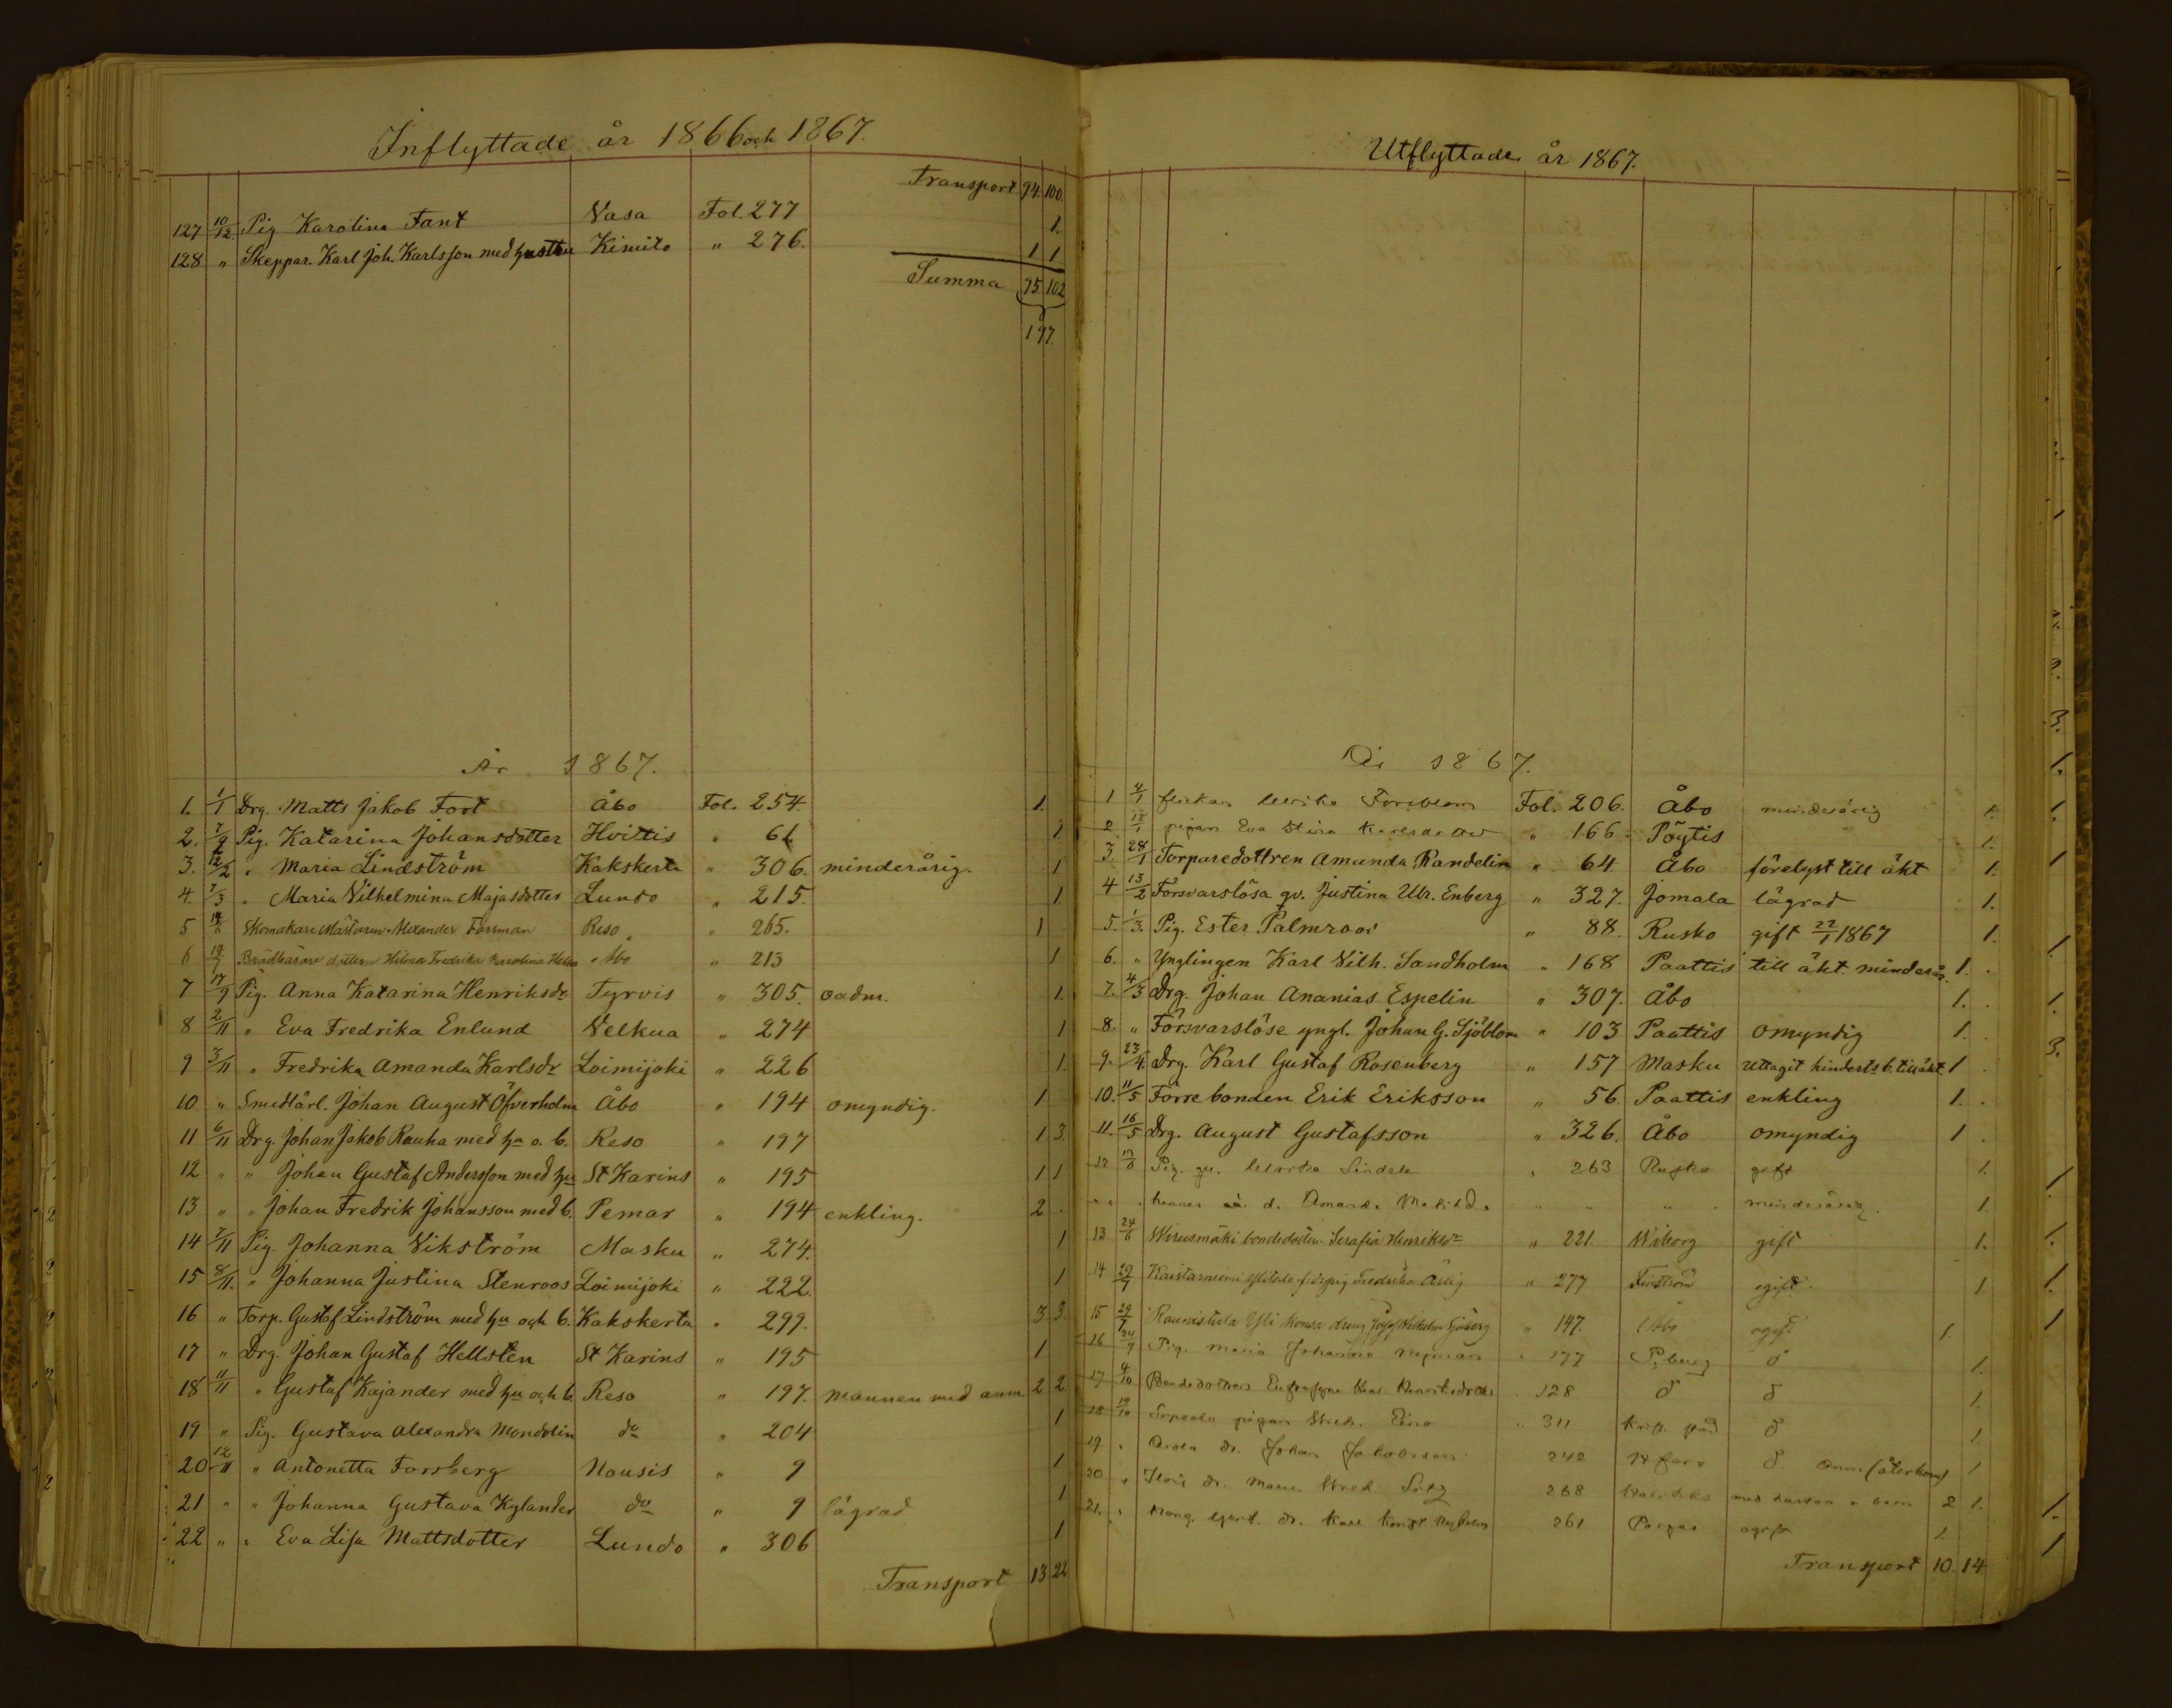 Inflyttade år 1866 och 1867.
Transport 94. 100.
127 10/12. Pig Karolina Fant Vasa Fol. 277 1.
128 " Skeppar. Karl Joh. Karlsson med hustru Kimito " 276. 1 1
Summa 95 102
197.
År 1867.
1. 1/1 Drg. Matts Jakob Fort Åbo Fol. 254. 1.
2. Pig. Katarina Johansdotter Hvittis " 61. 1.
3. 12/2 " Maria Lindström Kakskerta " 306. minderårig. 1
4. 7/3 " Maria Vilhelmina Majasdotter Lundo " 215. 1.
5 Skomakare Mästaren Alexander Forsman Reso " 265. 1
6 dottern Hilma Fredrika Karolina Åbo " 213 1
7 17/9 Pig. Anna Katarina Henriksdr Tyrvis " 305. oadm. 1.
8 2/11 " Eva Fredrika Enlund Velkua " 274 1
9 3/11 " Fredrika Amanda Karlsdr Loimijoki " 226 1.
10 " Smedlärl. Johan August Öfverholm Åbo " 194 omyndig. 1
11 6/11 Drg. Johan Jakob Rauha med hu o. b. Reso " 197 1 3.
12 " " Johan Gustaf Andersson med hu St Karins " 195 1 1
13 " " Johan Fredrik Johansson med b. Pemar " 194 enkling. 2 .
14 7/11 Pig. Johanna Vikström Masku " 274. 1
15 8/11. " Johanna Justina Stenroos Loimijoki " 222. 1
16 " Torp. Gustaf Lindström med hu och b. Kakskerta " 299. 3 3.
17 " Drg. Johan Gustaf Hellsten St Karins " 195 1
18 11/11 " Gustaf Kajander med hu och b. Reso " 197. mannen med anm. 2 2
19 " Pig. Gustava Alexandra Mondolin do " 204 1
20 12/11 " Antonetta Forsberg Nousis " 9 1
21 " " Johanna Gustava Kylander do " 9 lägrad 1
22 " " Eva Lisa Mattsdotter Lundo " 306 1
Transport 13 22
Utflyttade år 1867.
År 1867.
1 flickan Ulrika Forsblom Fol. 206. Åbo minderårig 1.
2 18/1 pigan Eva Stina Karlsdotter " 166. Pöytis 1.
3. 28/1 Torparedottren Amanda Randelin " 64. Åbo förelyst till äkt 1.
4 13/2 Försvarslösa qv. Justina Ulr. Enberg " 327. Jomala lägrad 1.
5. 1/3. Pig. Ester Palmroos " 88. Rusko gift 22/1 1867 1.
6. " Ynglingen Karl Vilh. Sandholm " 168 Paattis till äkt. minderår. 1.
7. 4/3 Drg. Johan Ananias Espelin " 307. Åbo 1.
8. " Försvarslöse yngl. Johan G. Sjöblom " 103 Paattis omyndig 1.
9. 23/4. Drg. Karl Gustaf Rosenberg " 157 Masku uttagit hinderls b. till äkt. 1
10. 11/5 Förre bonden Erik Eriksson " 56. Paattis enkling 1.
11. 16/5 Drg. August Gustafsson " 326. Åbo omyndig 1
12 Pig. Ulrika Lindell " 263 Rusko gift 1.
hennes oä. d. Amanda Matilda " " " minderårig. 1.
13 24/6 Wirusmäki bondedottern Serafia Henriksdr " 221. Wiborg gift 1.
14 29/7 Kaistarniemi Fredrika " 277 ogift 1.
15 29/7 Raunistula Yli Konsa dreng Sjöberg " 147. Åbo ogift 1.
16 Pig. Maria Johanna Nyman " 277 d 1.
17 4/10 Bondedottren " 128 d d 1.
18 pigan " 311 d 1
19 " dr. Johan Jakobsson 242 d. anm. (återkom) 1
20 " dr. 268 med hustru o barn 2 1.
21. " dr. Karl 261 Pargas ogift 1.
Transport 10. 14